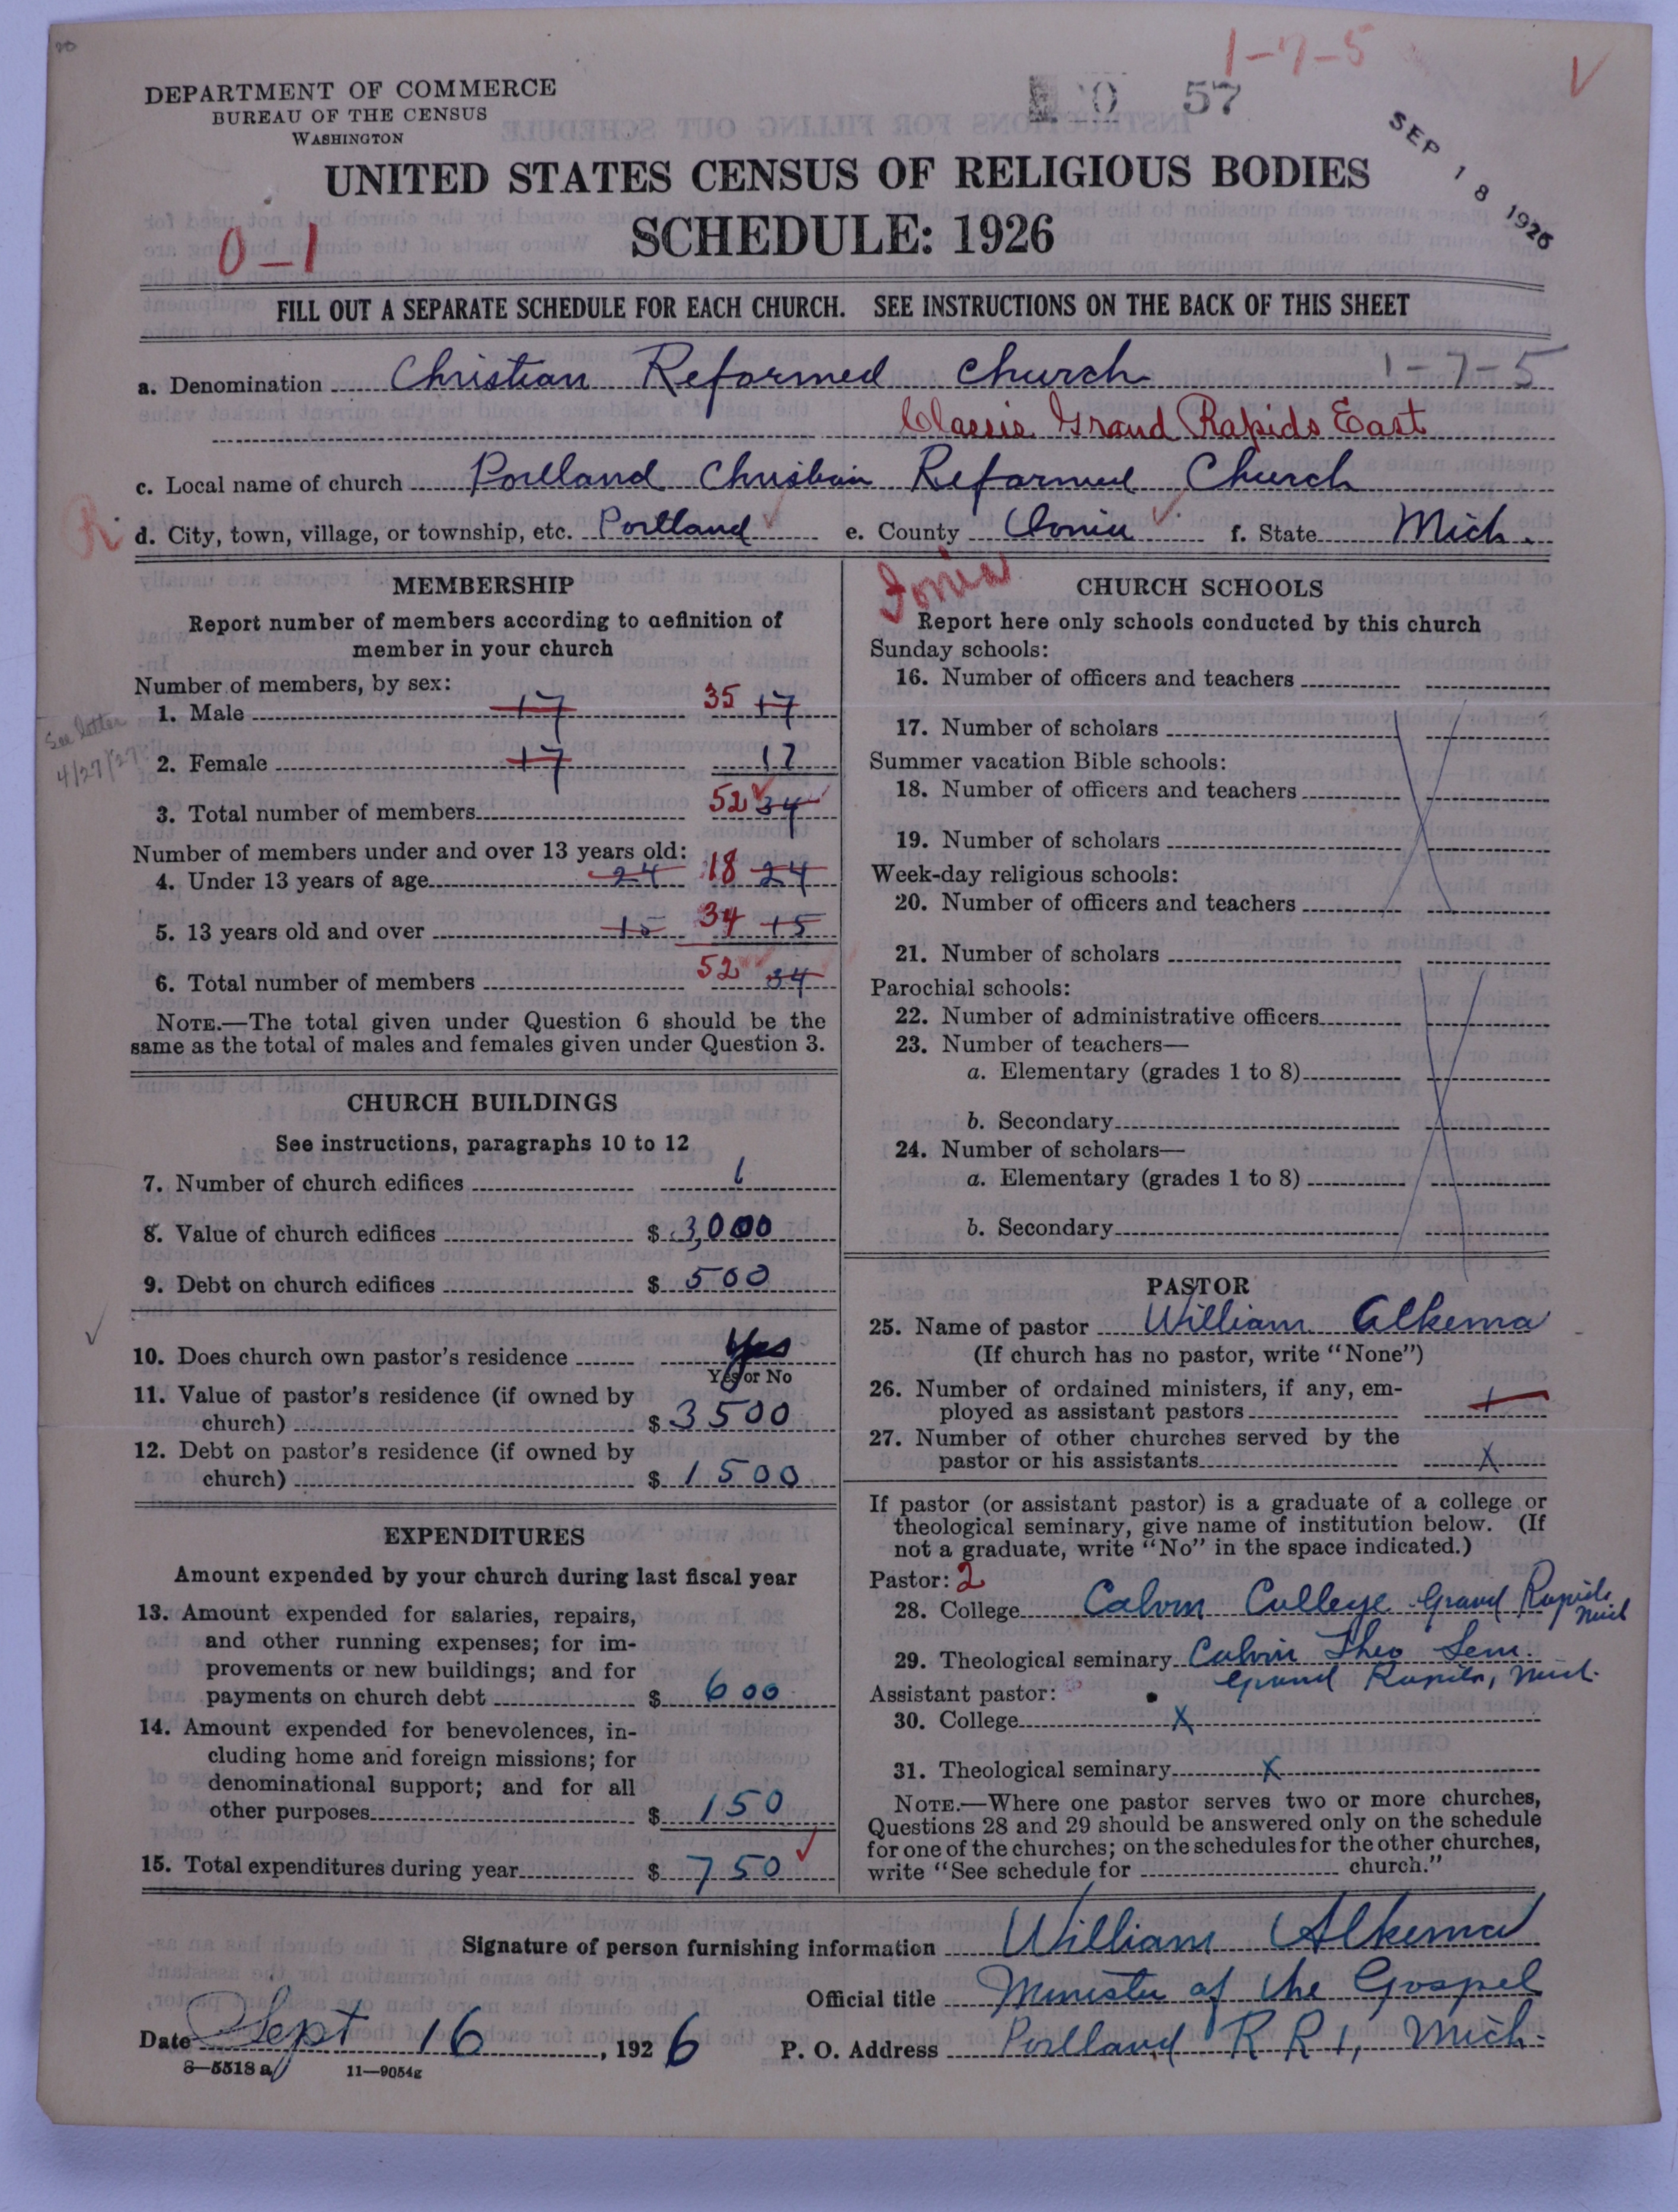 1-7-5
DEPARTMENT OF COMMERCE
BUREAU OF THE CENSUS
WASHINGTON
57
SEP 18 1926
UNITED STATES CENSUS OF RELIGIOUS BODIES
SCHEDULE: 1926
0-1
FILL OUT A SEPARATE SCHEDULE FOR EACH CHURCH. SEE INSTRUCTIONS ON THE BACK OF THIS SHEET
a. Denomination Christian Reformed Church 1-7-5
Classis Grand Rapids East
c. Local name of church Portland Christian Reformed Church
R d. City, town, village, or township, etc. Portland e. County Ionia f. State Mich.
Ionia
MEMBERSHIP
Report number of members according to definition of
member in your church
Number of members, by sex:
1. Male 17 35 17
See letter
4/27/27
2. Female 17 17
3. Total number of members 52 34
Number of members under and over 13 years old:
4. Under 13 years of age 24 18 24
5. 13 years old and over 15 34 15
6. Total number of members 52 34
NOTE.—The total given under Question 6 should be the
same as the total of males and females given under Question 3.
CHURCH BUILDINGS
See instructions, paragraphs 10 to 12
7. Number of church edifices 1
8. Value of church edifices $ 3,000
9. Debt on church edifices $ 500
10. Does church own pastor's residence Yes
Yes or No
11. Value of pastor's residence (if owned by
church) $ 3500
12. Debt on pastor's residence (if owned by
church) $ 1500
EXPENDITURES
Amount expended by your church during last fiscal year
13. Amount expended for salaries, repairs,
and other running expenses; for im-
provements or new buildings; and for
payments on church debt $ 600
14. Amount expended for benevolences, in-
cluding home and foreign missions; for
denominational support; and for all
other purposes $ 150
15. Total expenditures during year $ 750
CHURCH SCHOOLS
Report here only schools conducted by this church
Sunday schools:
16. Number of officers and teachers
17. Number of scholars
Summer vacation Bible schools:
18. Number of officers and teachers
19. Number of scholars
Week-day religious schools:
20. Number of officers and teachers
21. Number of scholars
Parochial schools:
22. Number of administrative officers
23. Number of teachers—
a. Elementary (grades 1 to 8)
b. Secondary
24. Number of scholars—
a. Elementary (grades 1 to 8)
b. Secondary
PASTOR
25. Name of pastor William Alkema
(If church has no pastor, write "None")
26. Number of ordained ministers, if any, em-
ployed as assistant pastors 1
27. Number of other churches served by the
pastor or his assistants X
If pastor (or assistant pastor) is a graduate of a college or
theological seminary, give name of institution below. (If
not a graduate, write "No" in the space indicated.)
Pastor: 2
28. College Calvin College Grand Rapids
Mich
29. Theological seminary Calvin Theo Sem.
Grand Rapids, Mich.
Assistant pastor:
30. College X
31. Theological seminary X
NOTE.—Where one pastor serves two or more churches,
Questions 28 and 29 should be answered only on the schedule
for one of the churches; on the schedules for the other churches,
write "See schedule for church."
Signature of person furnishing information William Alkema
Official title Minister of the Gospel
Date Sept 16, 1926 P. O. Address Portland R R 1, Mich.
8-5518 a 11-9054g